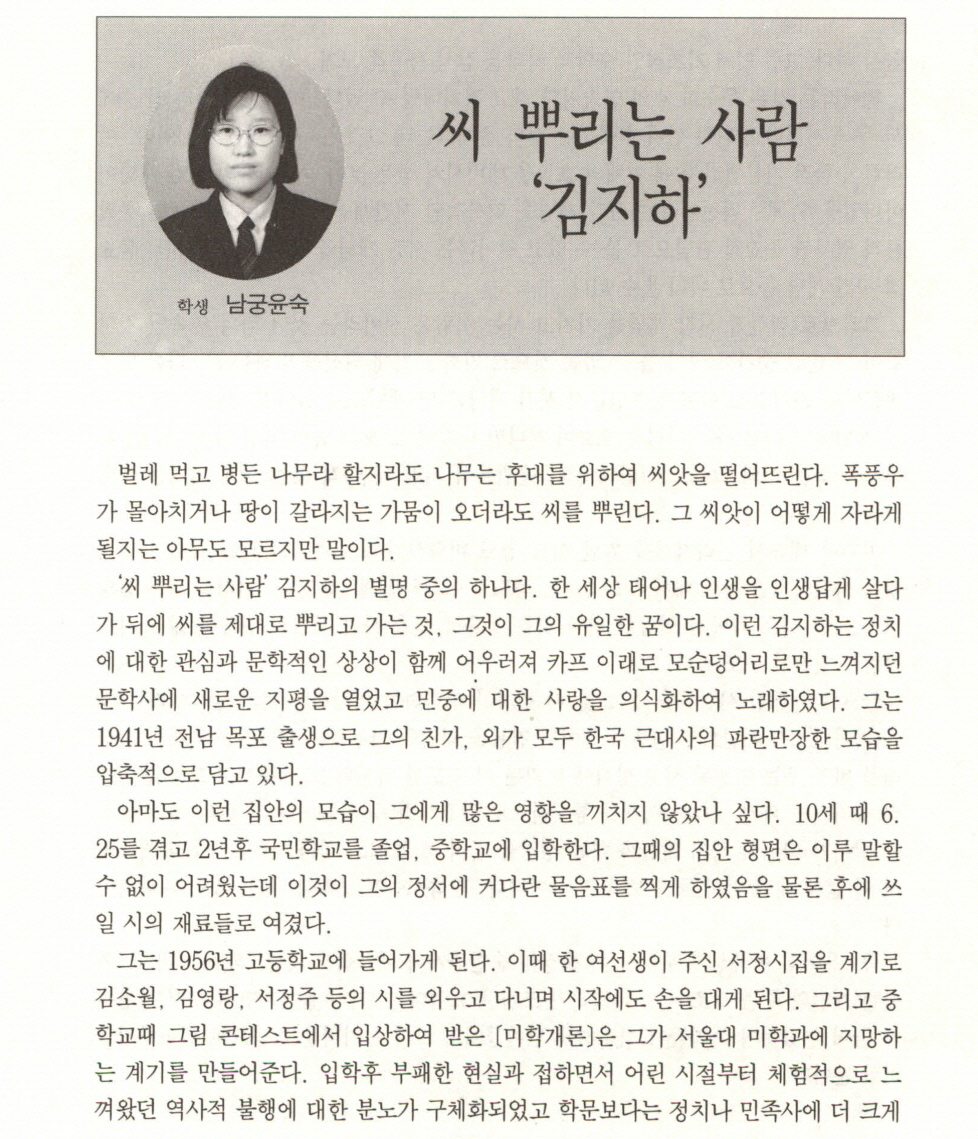 씨 뿌리는 사람
‘김지하’
학생 남궁윤숙
벌레 먹고 병든 나무라 할지라도 나무는 후대를 위하여 씨앗을 떨어뜨린다. 폭풍우
가 몰아치거나 땅이 갈라지는 가뭄이 오더라도 씨를 뿌린다. 그 씨앗이 어떻게 자라게
될지는 아무도 모르지만 말이다.
‘씨 뿌리는 사람’ 김지하의 별명 중의 하나다. 한 세상 태어나 인생을 인생답게 살다
가 뒤에 씨를 제대로 뿌리고 가는 것, 그것이 그의 유일한 꿈이다. 이런 김지하는 정치
에 대한 관심과 문학적인 상상이 함께 어우러져 카프 이래로 모순덩어리로만 느껴지던
문학사에 새로운 지평을 열었고 민중에 대한 사랑을 의식화하여 노래하였다. 그는
1941년 전남 목포 출생으로 그의 친가, 외가 모두 한국 근대사의 파란만장한 모습을
압축적으로 담고 있다.
아마도 이런 집안의 모습이 그에게 많은 영향을 끼치지 않았나 싶다. 10세 때 6.
25를 겪고 2년후 국민학교를 졸업, 중학교에 입학한다. 그때의 집안 형편은 이루 말할
수 없이 어려웠는데 이것이 그의 정서에 커다란 물음표를 찍게 하였음을 물론 후에 쓰
일 시의 재료들로 여겼다.
그는 1956년 고등학교에 들어가게 된다. 이때 한 여선생이 주신 서정시집을 계기로
김소월, 김영랑, 서정주 등의 시를 외우고 다니며 시작에도 손을 대게 된다. 그리고 중
학교때 그림 콘테스트에서 입상하여 받은 〔미학개론〕은 그가 서울대 미학과에 지망하
는 계기를 만들어준다. 입학후 부패한 현실과 접하면서 어린 시절부터 체험적으로 느
껴왔던 역사적 불행에 대한 분노가 구체화되었고 학문보다는 정치나 민족사에 더 크게